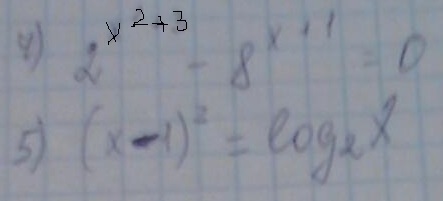 4) 2^{x^2+3} - 8^{x+1} = 0
5) (x-1)^2 = log_2 x